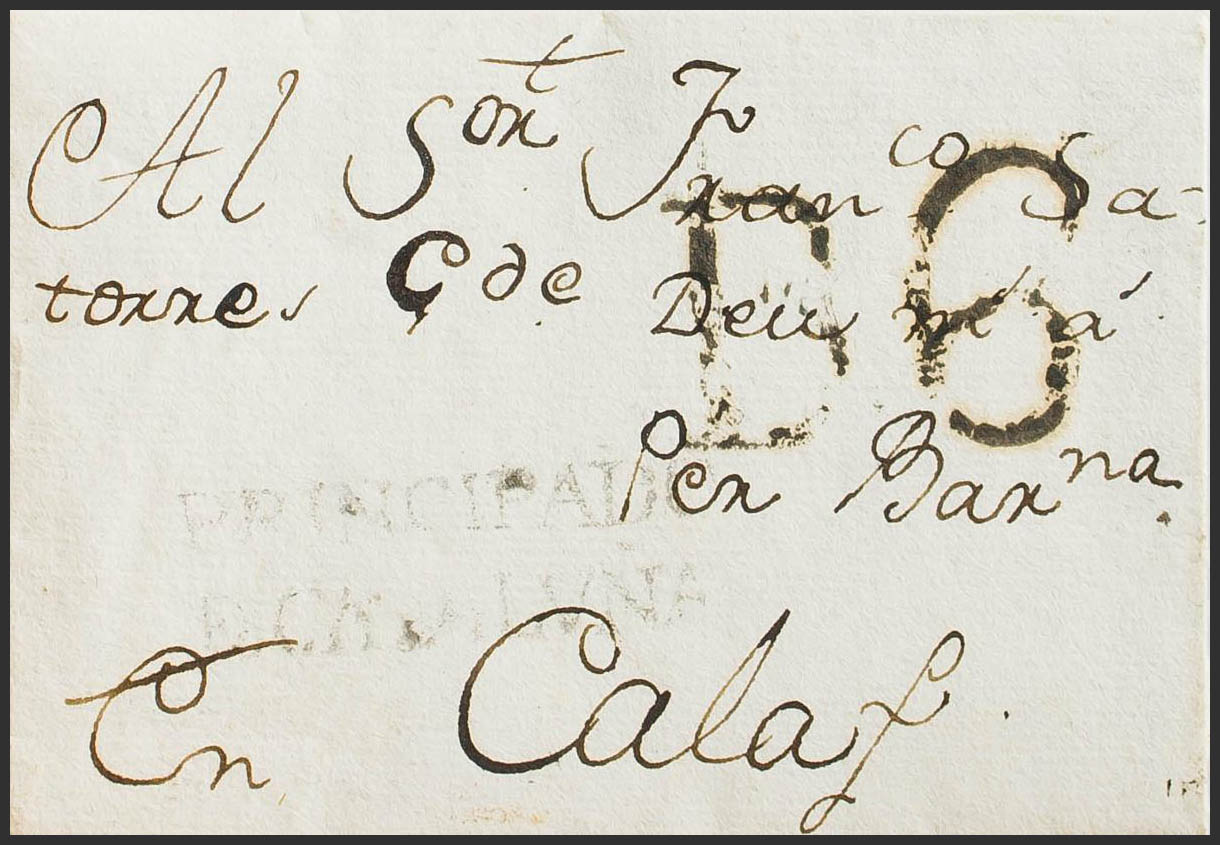 Al Sor Franco Sa-
torres Gde Deu m á
Per Barna
PRINCIPADO
D CATALUNA
En Calaf